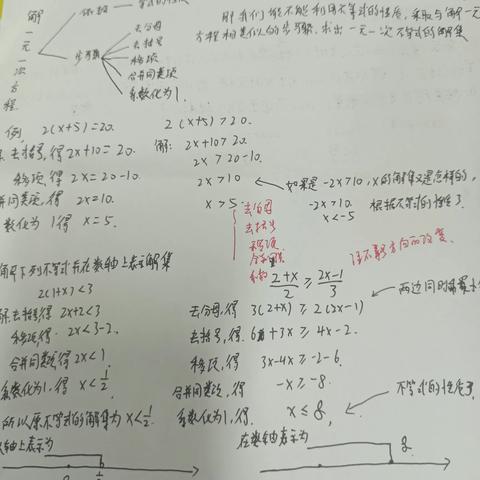 解一元一次方程
依据
等式的性质
步骤
去分母
去括号
移项
合并同类项
系数化为1.
那我们能不能利用不等式的性质,采取与解一元
方程相类似的步骤,求出一元一次不等式的解集
例, 2(x+5)=20.
去括号,得 2x+10=20.
移项,得 2x=20-10.
并同类项,得 2x=10.
数化为1得 x=5.
2(x+5)>20.
解: 2x+10>20.
2x>20-10.
2x>10
x>5.
如果是-2x>10,x的解集又是怎样的,
-2x>10.
x<-5
根据不等式的性质3
去分母
去括号
移项
合并
系数
注不等方向的改变.
解下列不等式并在数轴上表示解集
2(1+x)<3
解去括号得 2x+2<3
移项,得 2x<3-2.
合并同类项得 2x<1
系数化为1,得 x<1/2
所以原不等式的解集为 x<1/2.
轴上表示为
0 1/2
(2+x)/2 ≥ (2x-1)/3
两边同时
去分母,得 3(2+x)≥2(2x-1)
去括号,得. 6+3x≥4x-2.
移项,得 3x-4x≥-2-6.
合并同类项,得 -x≥-8.
系数化为1,得 x≤8,
不等式的性质3
在数轴表示为
8